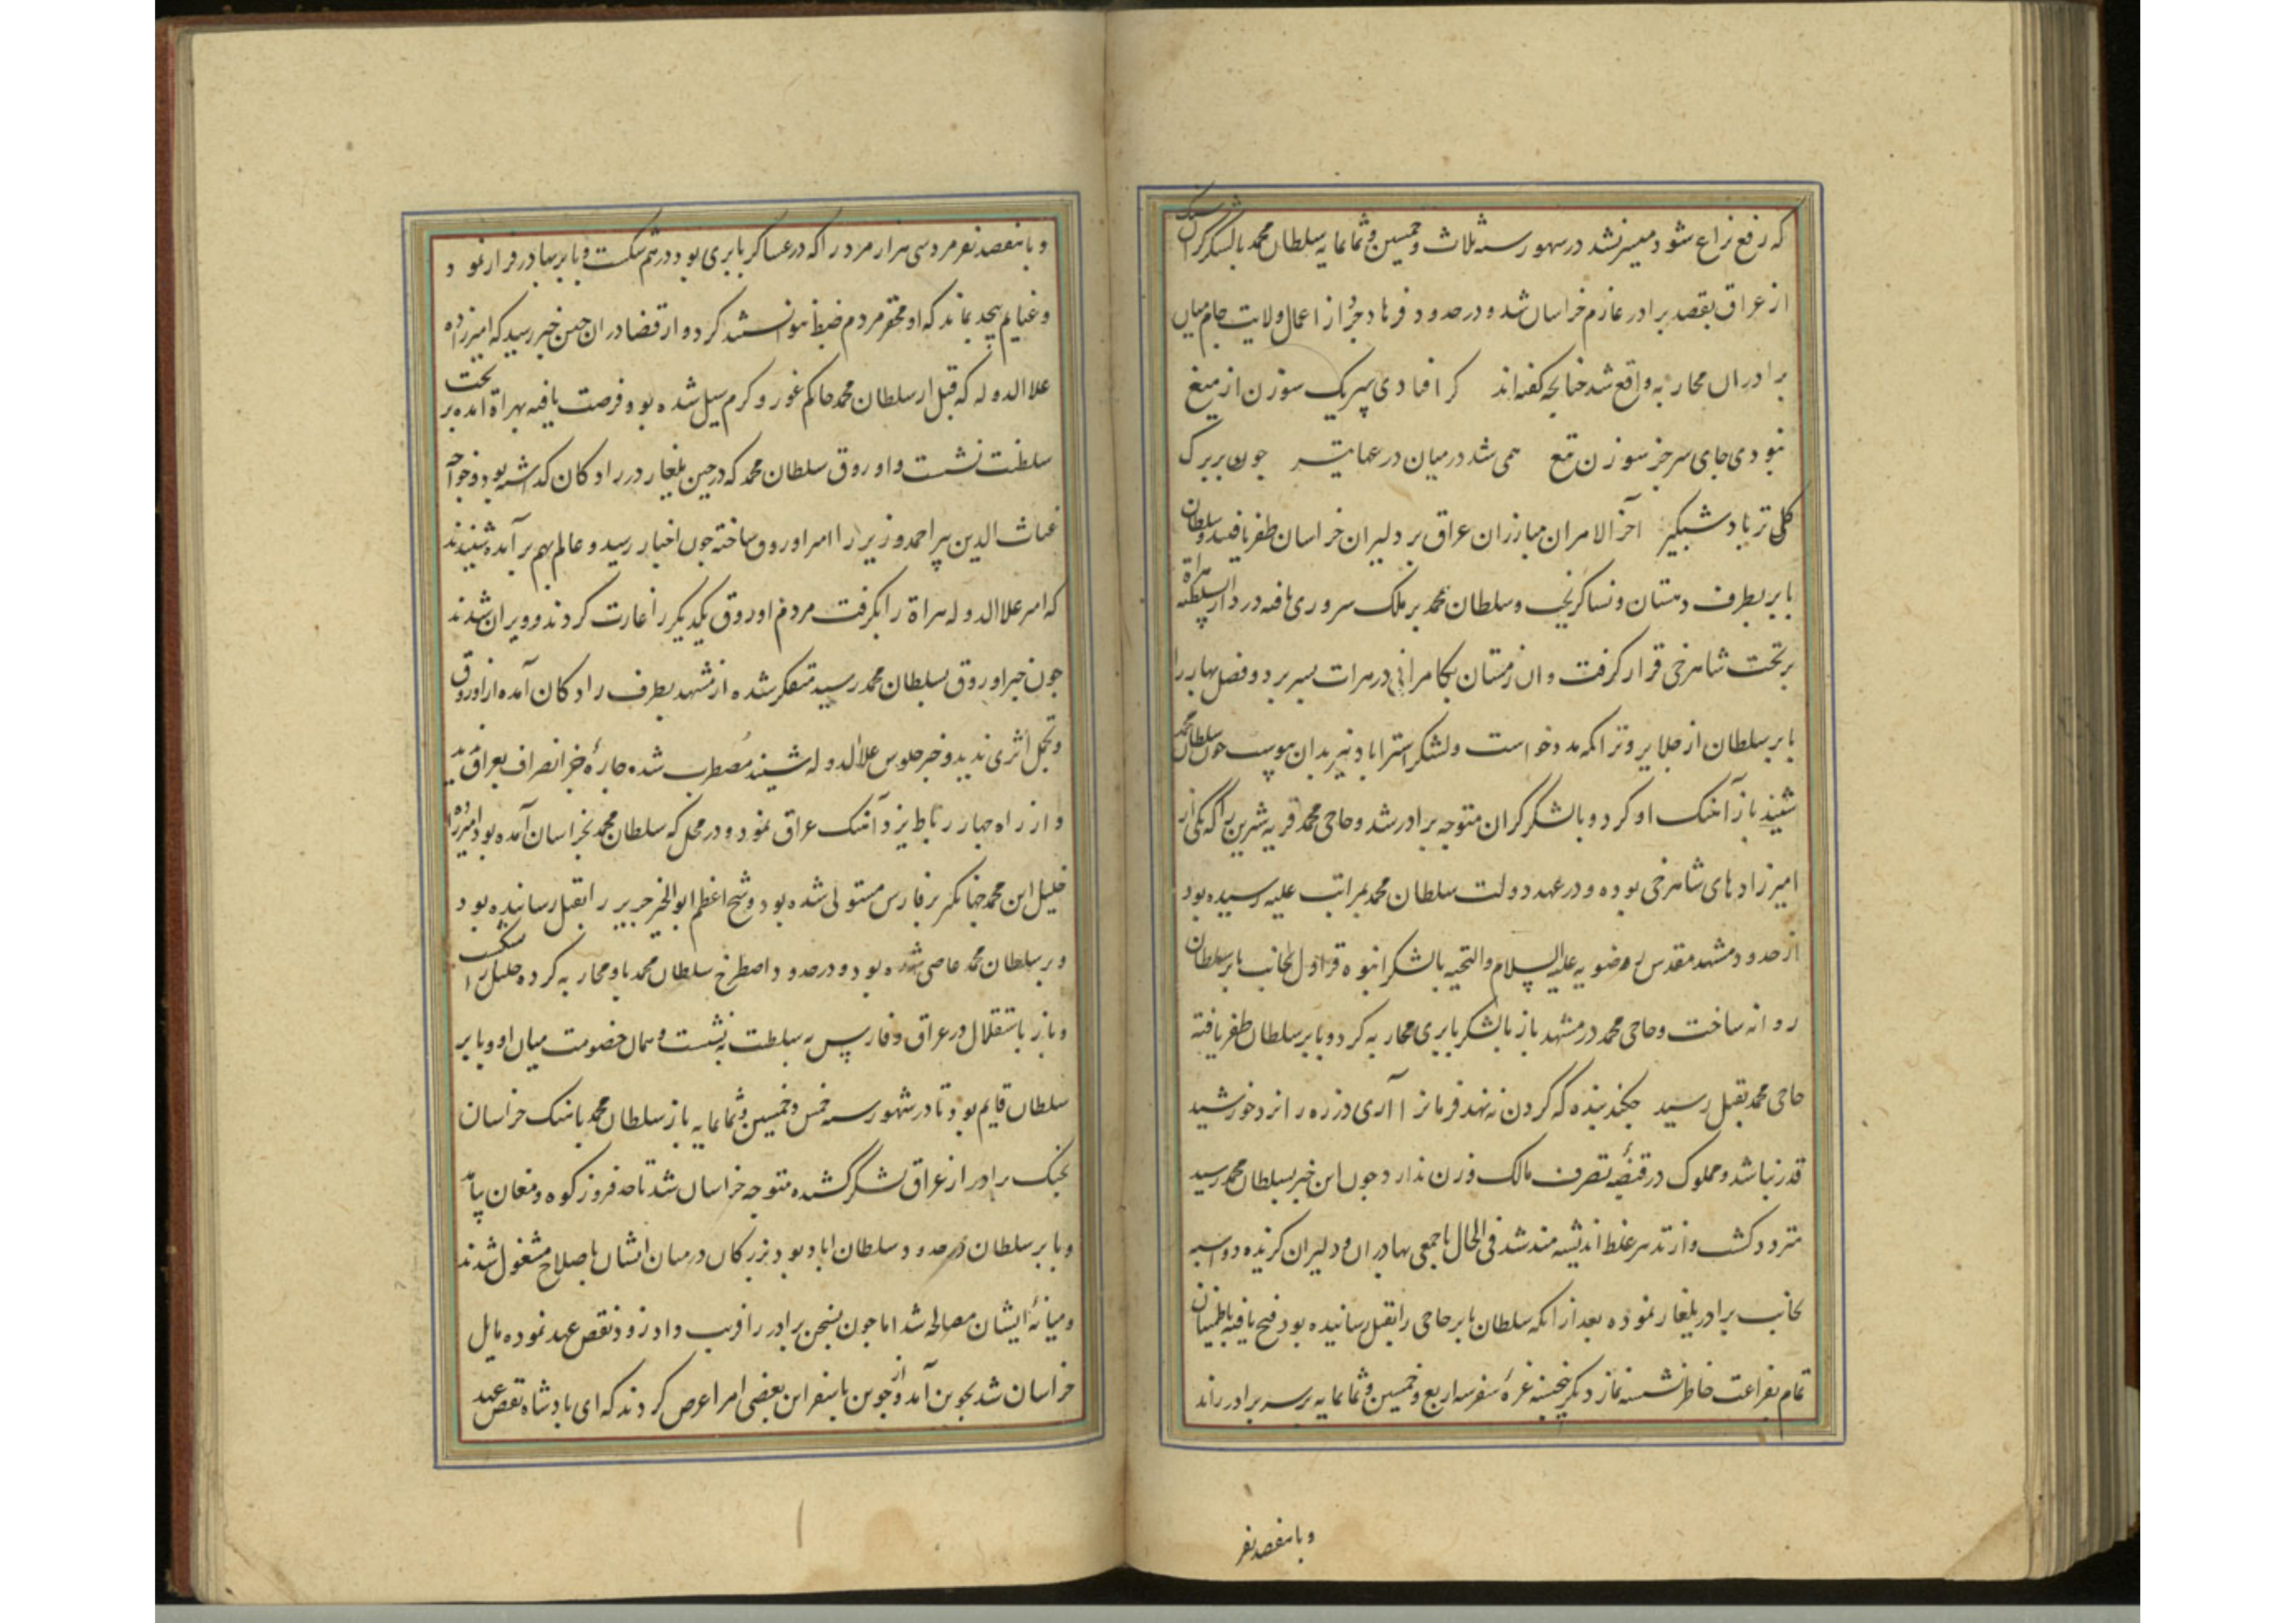 که رفع نزاع شود میسر نشد در شهور سنه ثلاث و خمسین و ثمانمایه سلطان محمد بالشکر گران
از عراق بقصد برادر عازم خراسان شد و در حدود فرهادجرد از اعمال ولایت جام میان
برادران محاربه واقع شد چنانچه گفته‌اند کر افتادی سپر یک سوزن از میغ
نبودی جای سر جز سوزن تیغ همی شد در میان درعها تیر چون بر برک
کلی تر باد شبکیر آخر الامر آن مبارزان عراق بر دلیران خراسان ظفر یافتند و سلطان
بابر بطرف دهستان و نسا کریخت و سلطان محمد بر ملک سروری یافته در دار السلطنه هراة
بر تخت شاهرخی قرار کرفت و ان زمستان بکامرانی در هرات بسر برد و فصل بهار را
بابر سلطان از جلایر و تراکمه مدد خواست و لشکر استراباد نیز بدان پیوست چون سلطان محمد
شنید باز آهنک او کرد و بالشکر گران متوجه برادر شد و حاجی محمد را که یکی از
امیرزادهای شاهرخی بوده و در عهد دولت سلطان محمد بمراتب علیه رسیده بود
از حدود مشهد مقدس رضویه علیه السلام والتحیه بالشکر انبوه قراول بجانب بابر سلطان
روانه ساخت و حاجی محمد در مشهد باز بالشکر بابری محاربه کرد و بابر سلطان ظفر یافته
حاجی محمد بقتل رسید چکند بنده که کردن ننهد فرمانرا آری ذره را نزد خورشید
قدر نباشد و مملوک در قبضه تصرف مالک وزن ندارد چون این خبر بسلطان محمد رسید
متردد کشت و از تدبیر غلط اندیشه مند شد فی الحال باجمعی بهادران و دلیران کزیده دواسبه
بجانب برادر یلغار نموده بعد از انکه سلطان بابر حاجی را بقتل رسانیده بود فتح یافته باطمینان
تمام بفراغت خاطر نشسته نماز دیکر پنجشنبه غرهٔ صفر سنه اربع و خمسین و ثمانمایه بر سر برادر راند
و با هفصد نفر
و با هفصد نفر مرد سی هزار مرد را که در عساکر بابری بود در هم شکست و بابر بهادر فرار نمود
و غنایم بیحد بماند که او و محقر مردم ضبط نتوانستند کرد و از قضا در ان حین خبر رسید که امیرزاده
علاالدوله که قبل از سلطان محمد حاکم غور و کرمسیل شده بود و فرصت یافته بهراة امده بر تخت
سلطنت نشست و اوروق سلطان محمد که در حین یلغار در رادکان کذاشته بود و خواجه
غیاث الدین پیر احمد وزیر را امیر اوروق ساخته چون اخبار رسید و عالم بهم بر آمده شنیدند
که امیر علاالدوله هراة را بکرفت مردم اوروق یکدیکر را غارت کردند و ویران شدند
چون خبر اوروق بسلطان محمد رسید متفکر شده از مشهد بطرف رادکان آمده از اوروق
و تجمل اثری ندید و خبر جلوس علاالدوله شنید مضطرب شده چارهٔ جز انصراف بعراق ندید
و از راه چهار رباط یزد آهنک عراق نمود و در محل که سلطان محمد بخراسان آمده بود امیرزاده
خلیل ابن محمد جهانکیر بر فارس مستولی شده بود و شیخ اعظم ابوالخیر جریر را بقتل رسانیده بود
و بر سلطان محمد عاصی شده بود و در حدود اصطرخ سلطان محمد باو محاربه کرده خلیل را شکست
و باز باستقلال در عراق و فارس به سلطنت بنشست و همان خصومت میان او و بابر
سلطان قایم بود تا در شهور سنه خمس و خمسین و ثمانمایه باز سلطان محمد باهنک خراسان
بجنک برادر از عراق لشکر کشیده متوجه خراسان شد تا حد فیروزکوه و دمغان بیامد
و بابر سلطان در حدود سلطان اباد بود بزرکان در میان ایشان باصلاح مشغول شدند
و میانهٔ ایشان مصالحه شد اما چون بسخن برادر را فریب داد زود نقص عهد نموده مایل
خراسان شد بجوین آمد و از جوین باسفراین بعضی امرا عرض کردند که ای بادشاه نقص عهد